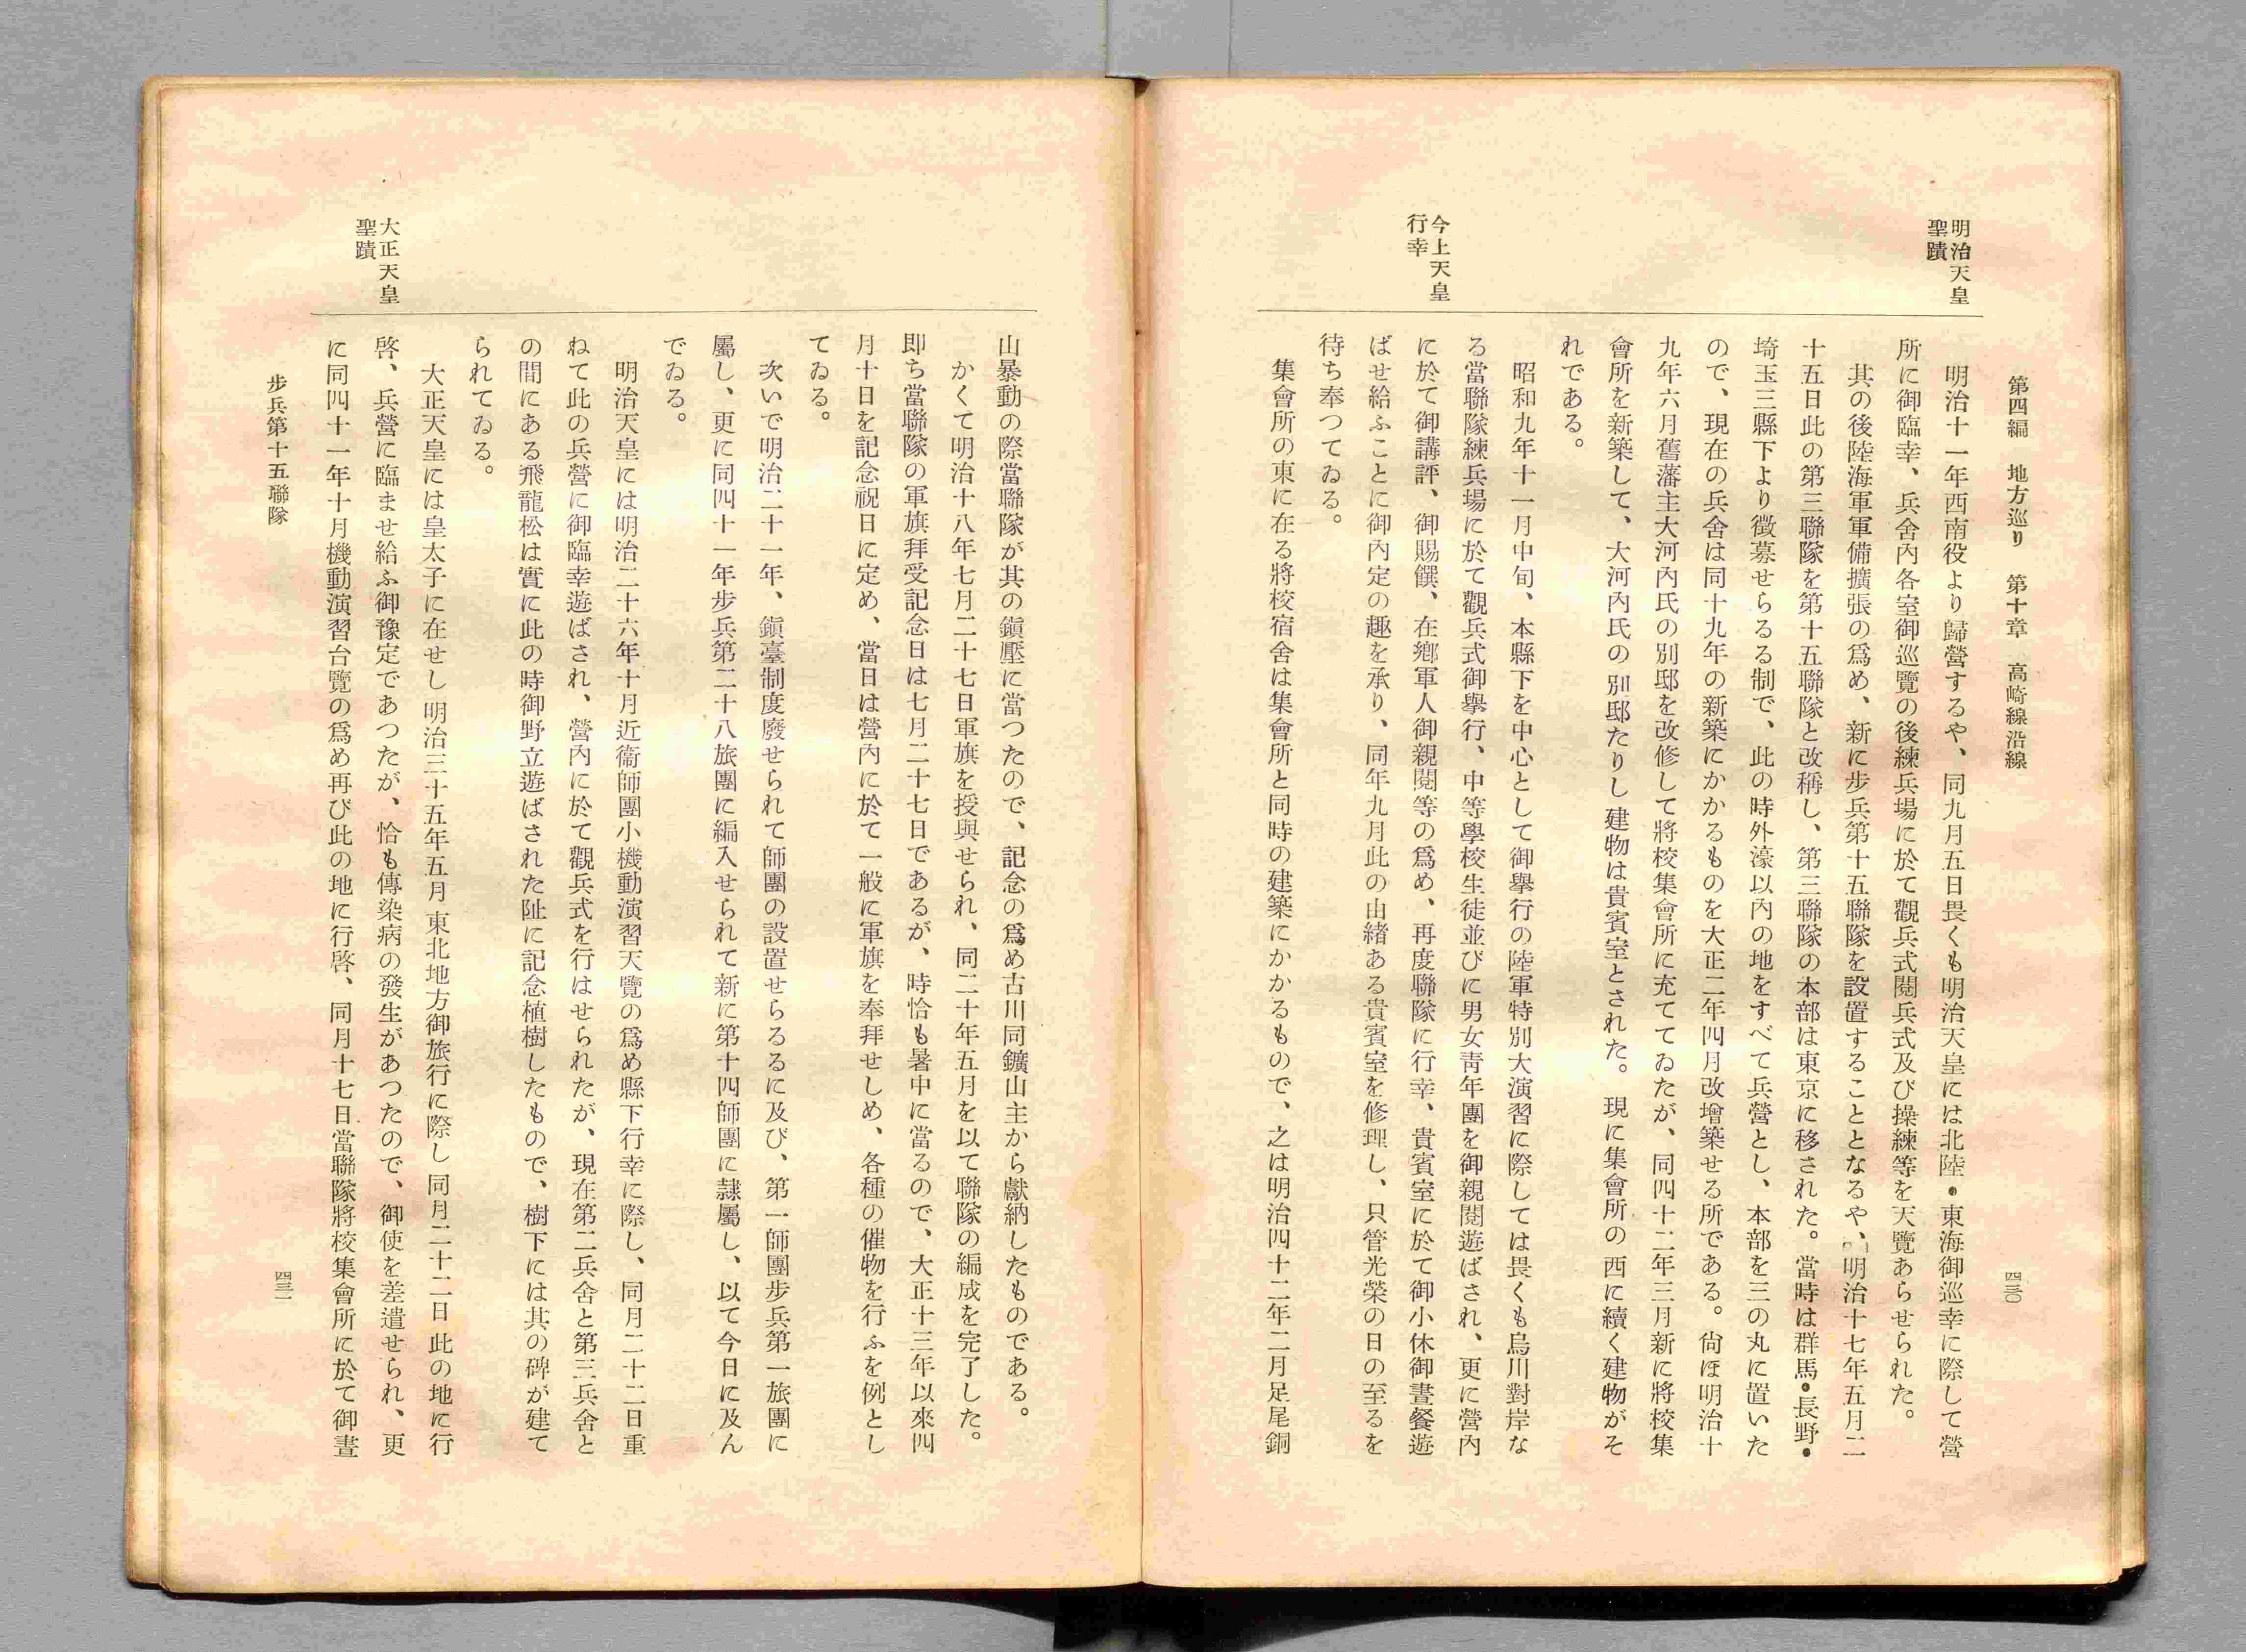 第四編　地方巡り　第十章　高崎線沿線
四三〇
明治天皇
聖蹟
明治十一年西南役より歸營するや、同九月五日畏くも明治天皇には北陸・東海御巡幸に際して營
所に御臨幸、兵舍內各室御巡覽の後練兵場に於て觀兵式閱兵式及び操練等を天覽あらせられた。
其の後陸海軍軍備擴張の爲め、新に步兵第十五聯隊を設置することとなるや、明治十七年五月二
十五日此の第三聯隊を第十五聯隊と改稱し、第三聯隊の本部は東京に移された。當時は群馬・長野・
埼玉三縣下より徵募せらるる制で、此の時外濠以內の地をすべて兵營とし、本部を三の丸に置いた
ので、現在の兵舍は同十九年の新築にかかるものを大正二年四月改增築せる所である。尙ほ明治十
九年六月舊藩主大河內氏の別邸を改修して將校集會所に充ててゐたが、同四十二年三月新に將校集
會所を新築して、大河內氏の別邸たりし建物は貴賓室とされた。現に集會所の西に續く建物がそ
れである。
今上天皇
行幸
昭和九年十一月中旬、本縣下を中心として御擧行の陸軍特別大演習に際しては畏くも烏川對岸な
る當聯隊練兵場に於て觀兵式御擧行、中等學校生徒並びに男女靑年團を御親閱遊ばされ、更に營內
に於て御講評、御賜饌、在鄕軍人御親閱等の爲め、再度聯隊に行幸、貴賓室に於て御小休御晝餐遊
ばせ給ふことに御內定の趣を承り、同年九月此の由緖ある貴賓室を修理し、只管光榮の日の至るを
待ち奉つてゐる。
集會所の東に在る將校宿舍は集會所と同時の建築にかかるもので、之は明治四十二年二月足尾銅
山暴動の際當聯隊が其の鎭壓に當つたので、記念の爲め古川同鑛山主から獻納したものである。
かくて明治十八年七月二十七日軍旗を授與せられ、同二十年五月を以て聯隊の編成を完了した。
卽ち當聯隊の軍旗拜受記念日は七月二十七日であるが、時恰も暑中に當るので、大正十三年以來四
月十日を記念祝日に定め、當日は營內に於て一般に軍旗を奉拜せしめ、各種の催物を行ふを例とし
てゐる。
次いで明治二十一年、鎭臺制度廢せられて師團の設置せらるるに及び、第一師團步兵第一旅團に
屬し、更に同四十一年步兵第二十八旅團に編入せられて新に第十四師團に隷屬し、以て今日に及ん
でゐる。
明治天皇には明治二十六年十月近衞師團小機動演習天覽の爲め縣下行幸に際し、同月二十二日重
ねて此の兵營に御臨幸遊ばされ、營內に於て觀兵式を行はせられたが、現在第二兵舍と第三兵舍と
の間にある飛龍松は實に此の時御野立遊ばされた阯に記念植樹したもので、樹下には其の碑が建て
られてゐる。
大正天皇
聖蹟
大正天皇には皇太子に在せし明治三十五年五月東北地方御旅行に際し同月二十二日此の地に行
啓、兵營に臨ませ給ふ御豫定であつたが、恰も傳染病の發生があつたので、御使を差遣せられ、更
に同四十一年十月機動演習台覽の爲め再び此の地に行啓、同月十七日當聯隊將校集會所に於て御晝
步兵第十五聯隊
四三一